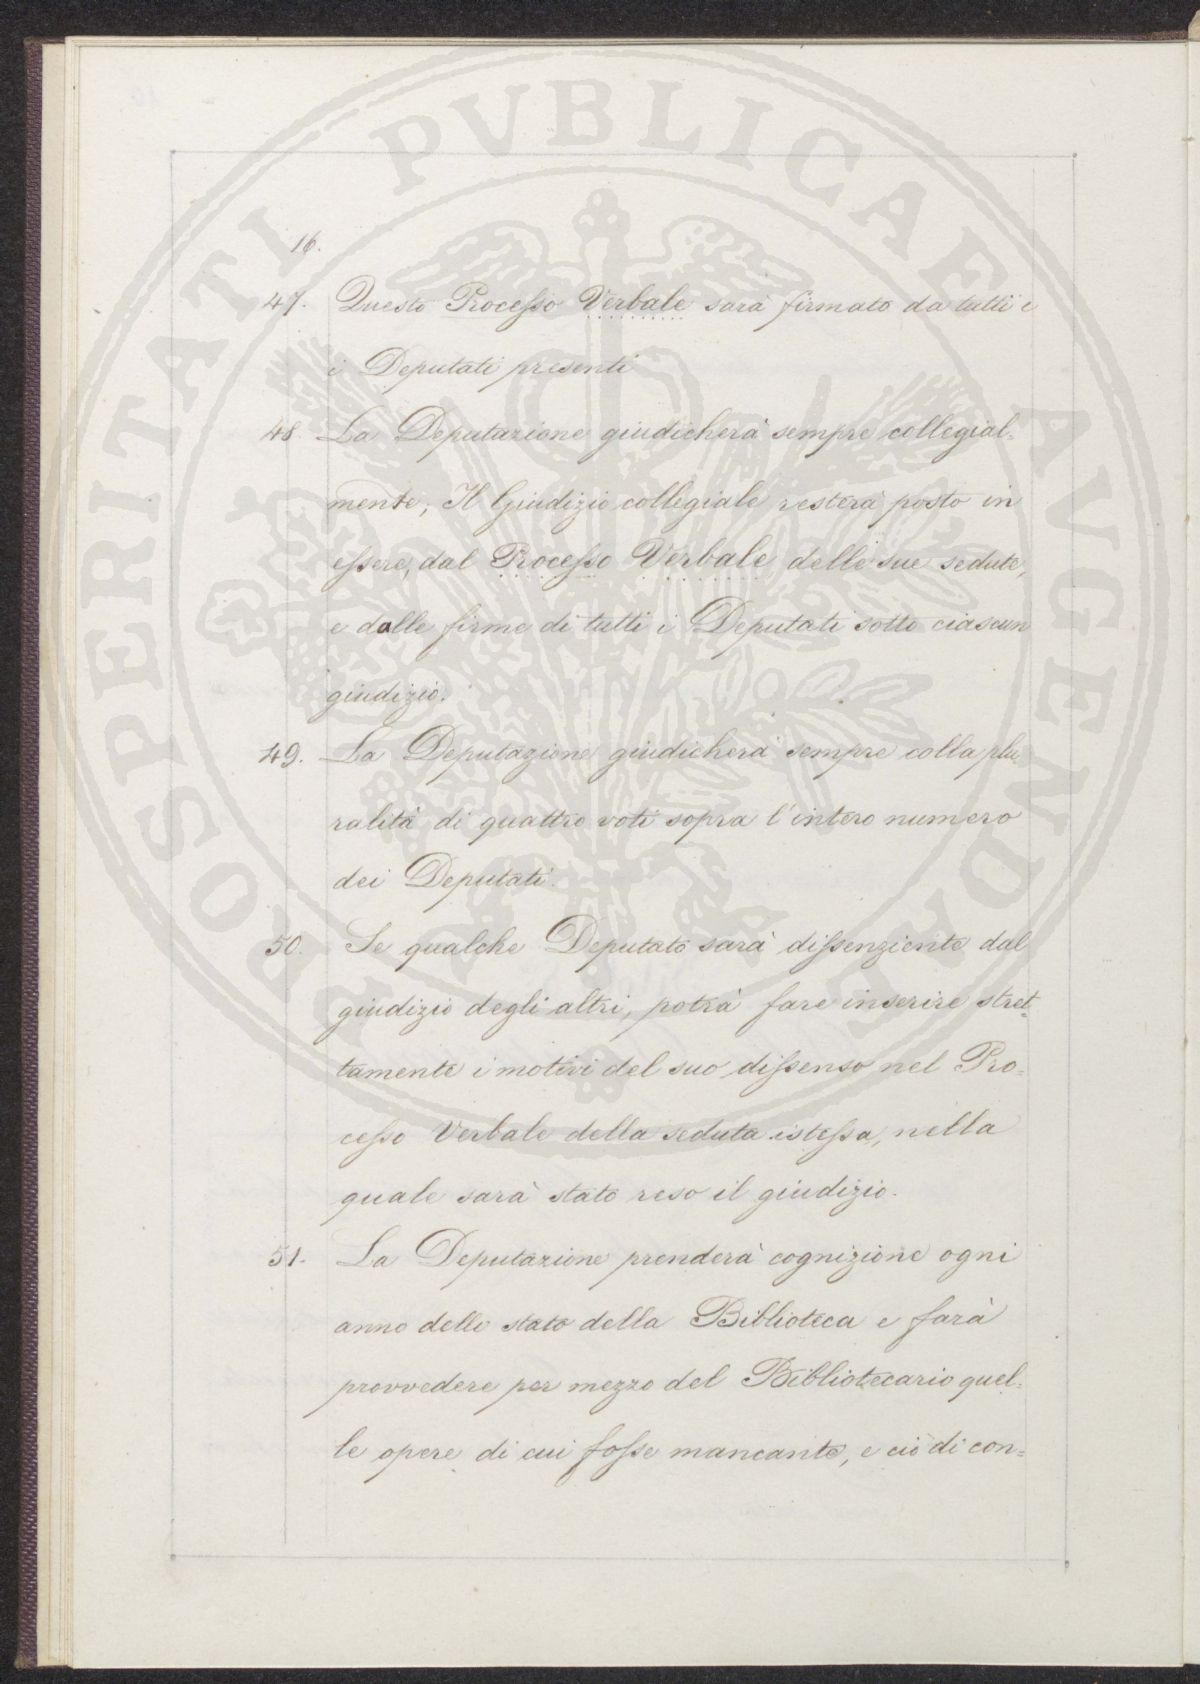 PROSPERITATI PVBLICAE AVGENDAE
16.
47. Questo Processo Verbale sarà firmato da tutti e
i Deputati presenti
48. La Deputazione giudicherà sempre collegial=
mente, Il Giudizio collegiale resterà posto in
essere, dal Processo Verbale delle sue sedute,
e dalle firme di tutti i Deputati sotto ciascun
giudizio.
49. La Deputazione giudicherà sempre colla plu
ralità di quattro voti sopra l'intero numero
dei Deputati.
50. Se qualche Deputato sarà dissenziente dal
giudizio degli altri, potrà fare inserire stret=
tamente i motivi del suo dissenso nel Pro=
cesso Verbale della seduta istessa, nella
quale sarà stato reso il giudizio.
51. La Deputazione prenderà cognizione ogni
anno dello stato della Biblioteca e farà
provvedere per mezzo del Bibliotecario quel=
le opere di cui fosse mancante, e ciò di con=